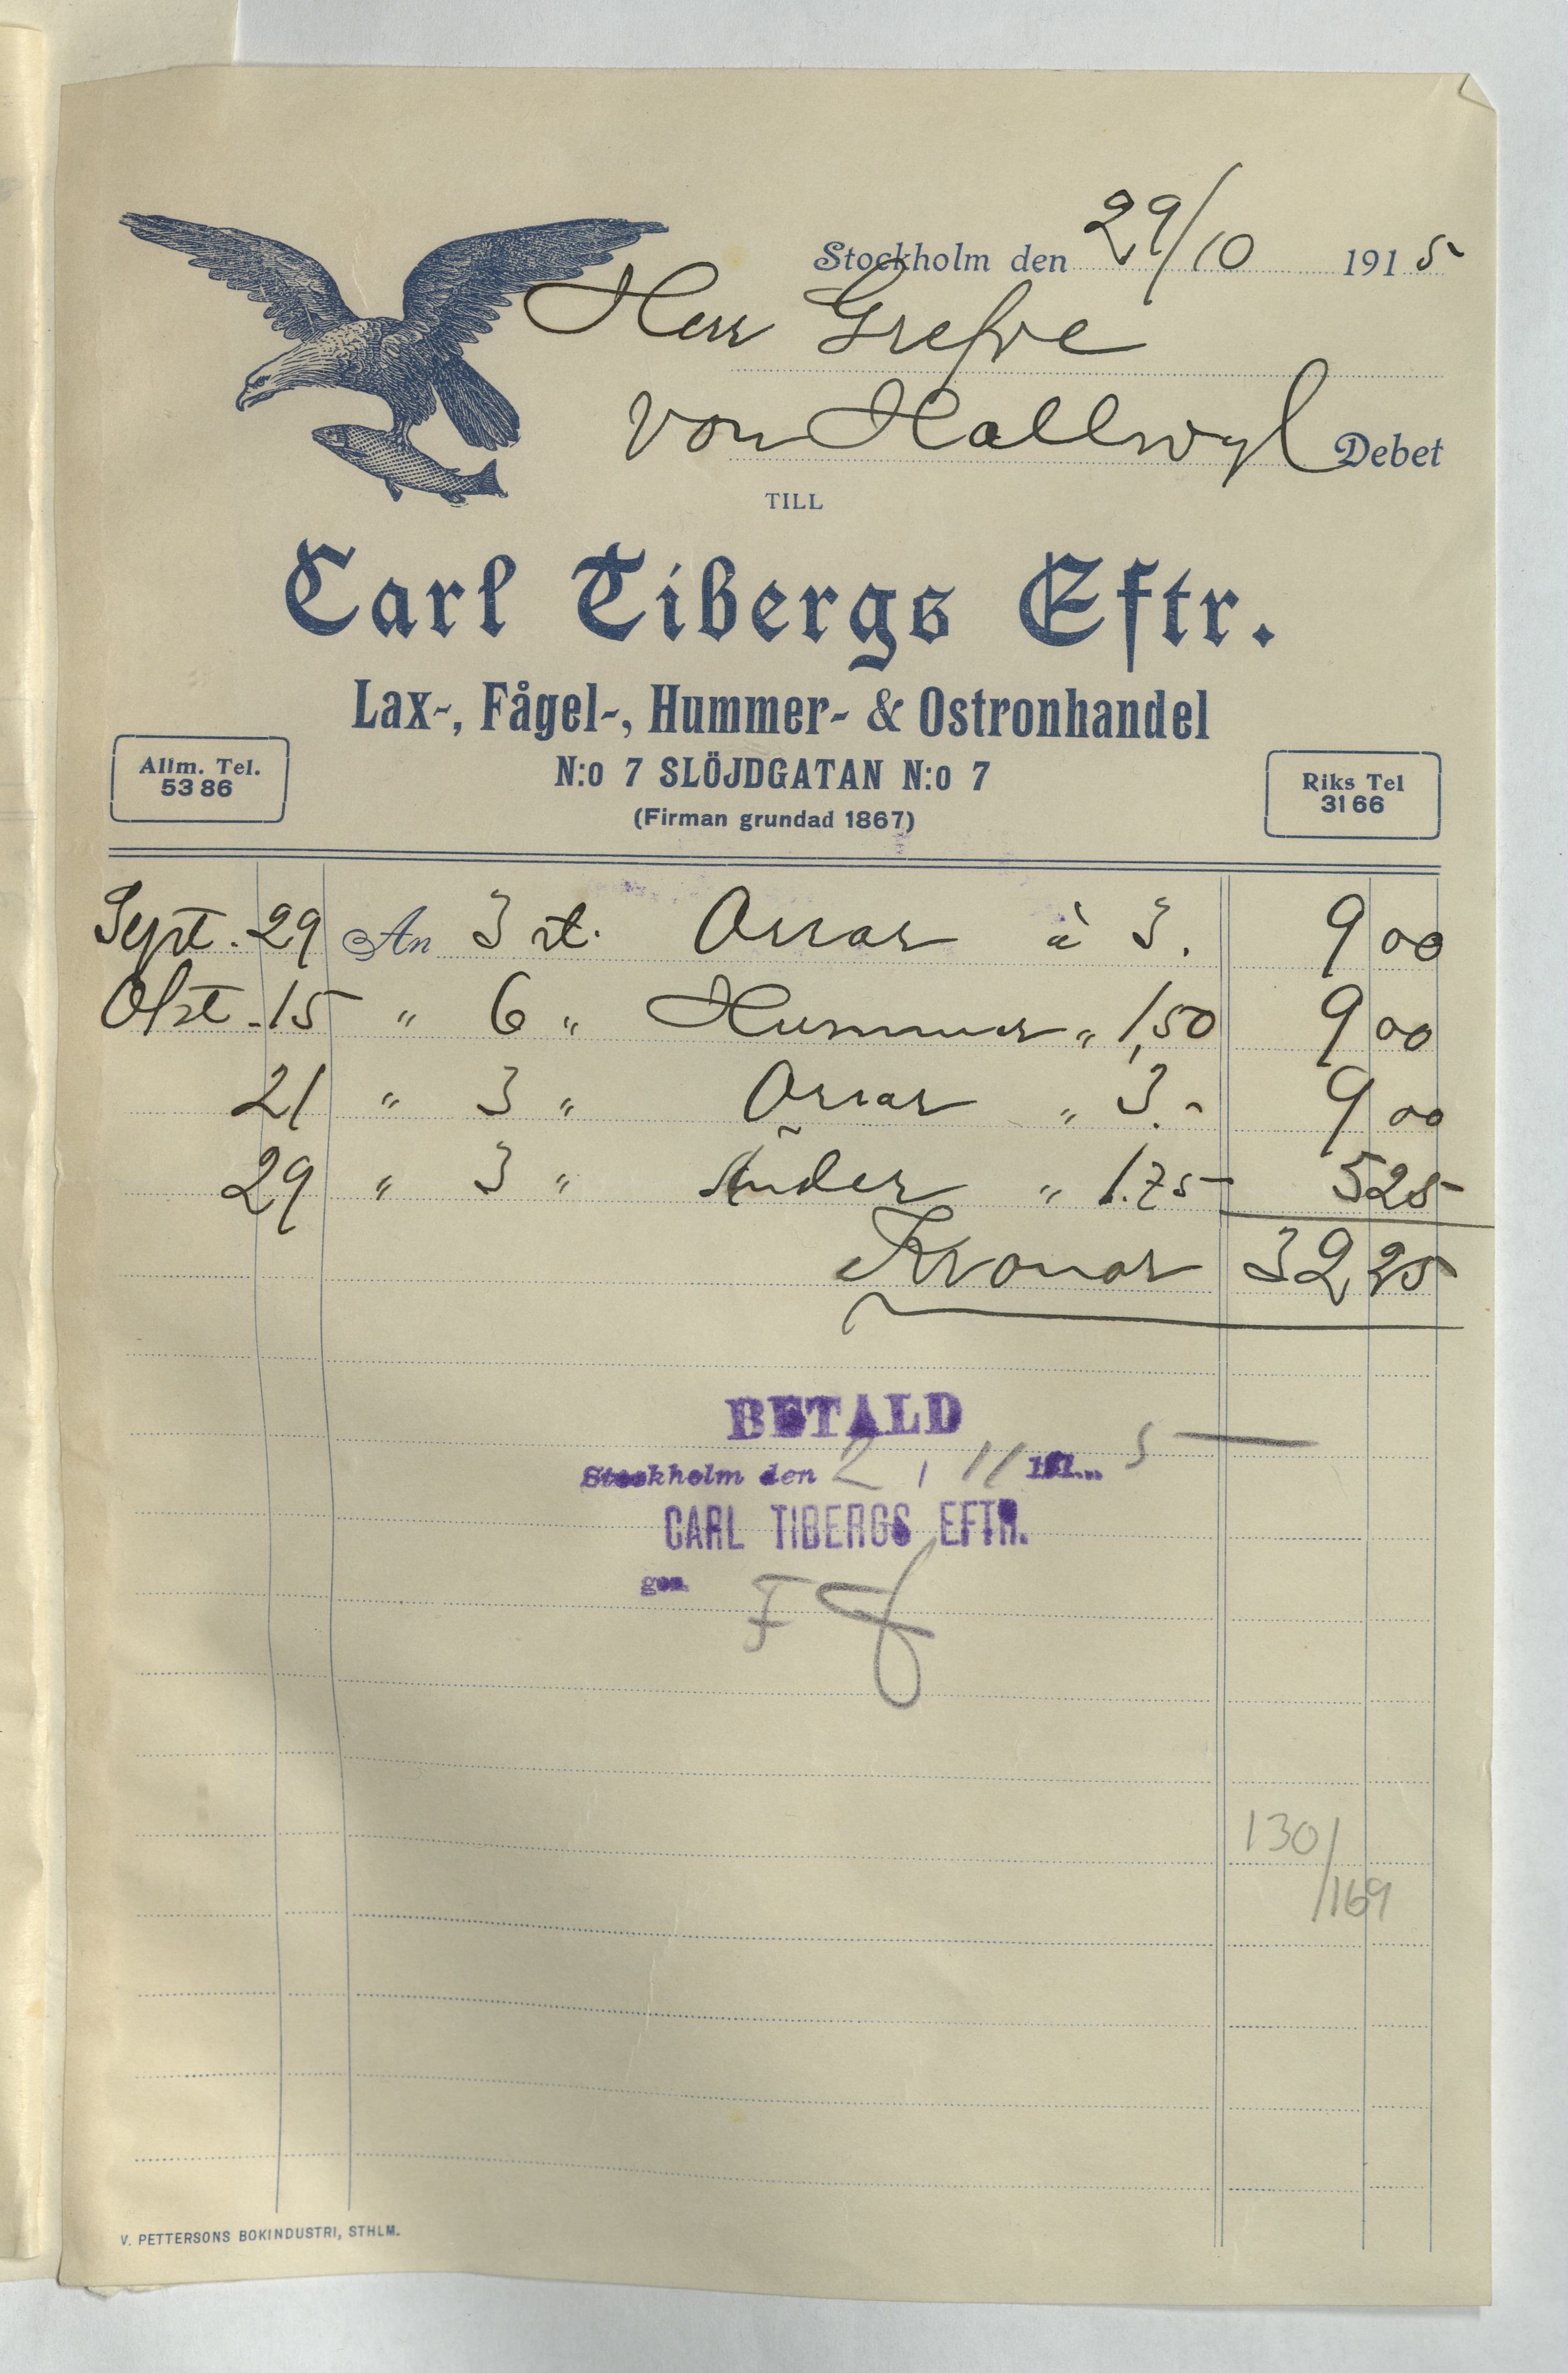 Stockholm den 29/10 1915
Herr Grefve
von Hallwyl Debet
TILL
Carl Tibergs Eftr.
Lax-, Fågel-, Hummer- & Ostronhandel
N:o 7 SLÖJDGATAN N:o 7
(Firman grundad 1867)
Allm. Tel.
53 86
Riks Tel
31 66
Sept. 29 An 3 st. Orrar à 3. 9 00
Okt. 15 " 6 " Hummer " 1,50 9 00
21 " 3 " Orrar " 3.- 9 00
29 " 3 " Änder " 1.75 5 25
Kronor 32 25
BETALD
Stockholm den 2 / 11 191... 5
CARL TIBERGS EFTR.
gm.
130/
/169
V. PETTERSONS BOKINDUSTRI, STHLM.